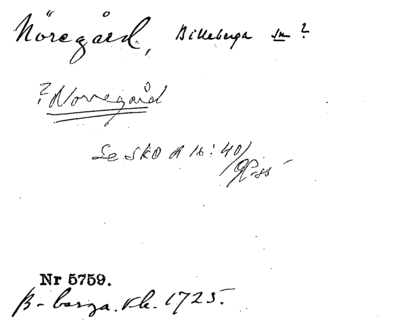 Nöregård, Billeberga sn?
? Norregård
Se SKO A 16:40
Nr 5759.
B-berga. kb. 1725.